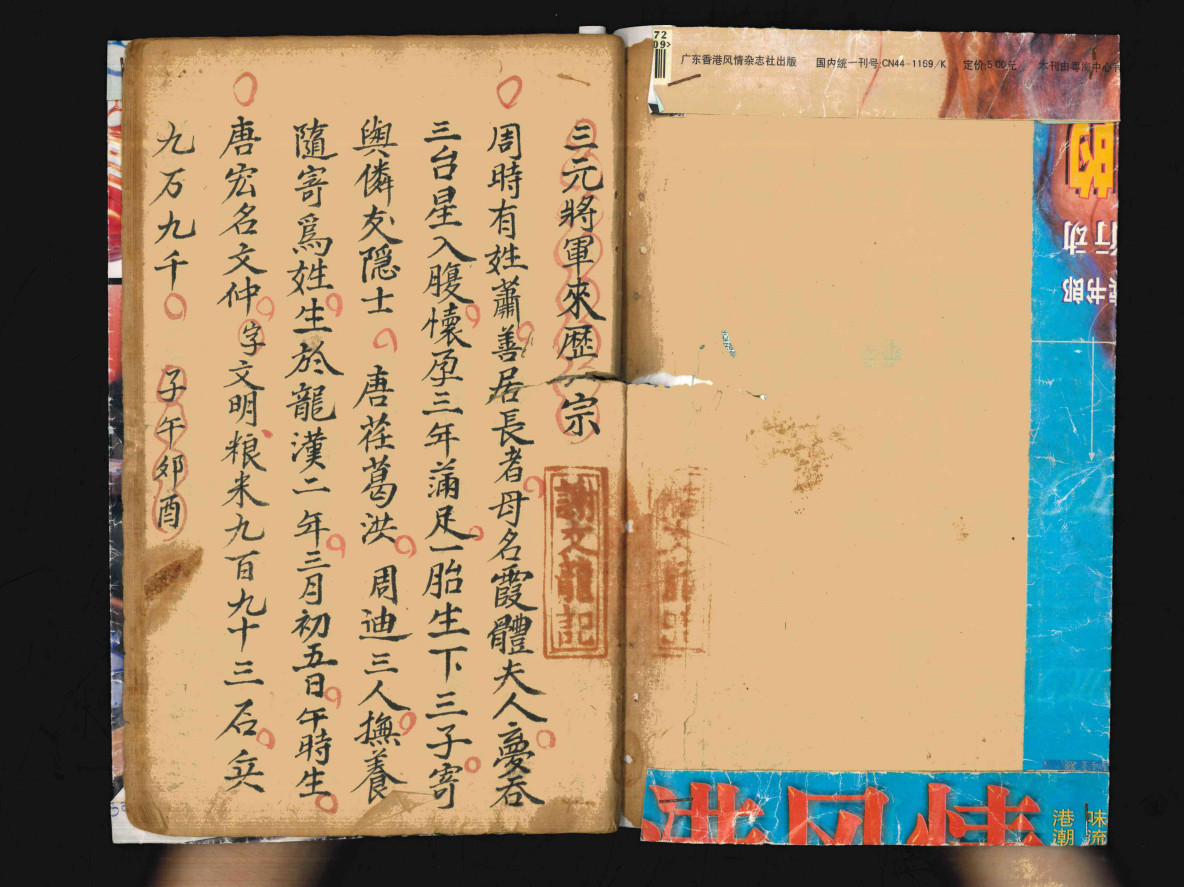 三元將軍來歴一宗
謝文龍記
周時有姓蕭善居長者母名霞體夫人夢吞
三台星入腹懐孕三年滿足一胎生下三子寄
與憐友隠士 唐荏葛洪 周迪三人撫養
隨寄爲姓生於龍漢二年三月初五日午時生
唐宏名文仲字文明粮米九百九十三石兵
九万九千 子午卯酉
广东香港风情杂志社出版 国内统一刊号:CN44-1169/K 定价:5.00元 本刊由粤海中心
72
09>
的
行动
书郎
港风情
港潮
味流